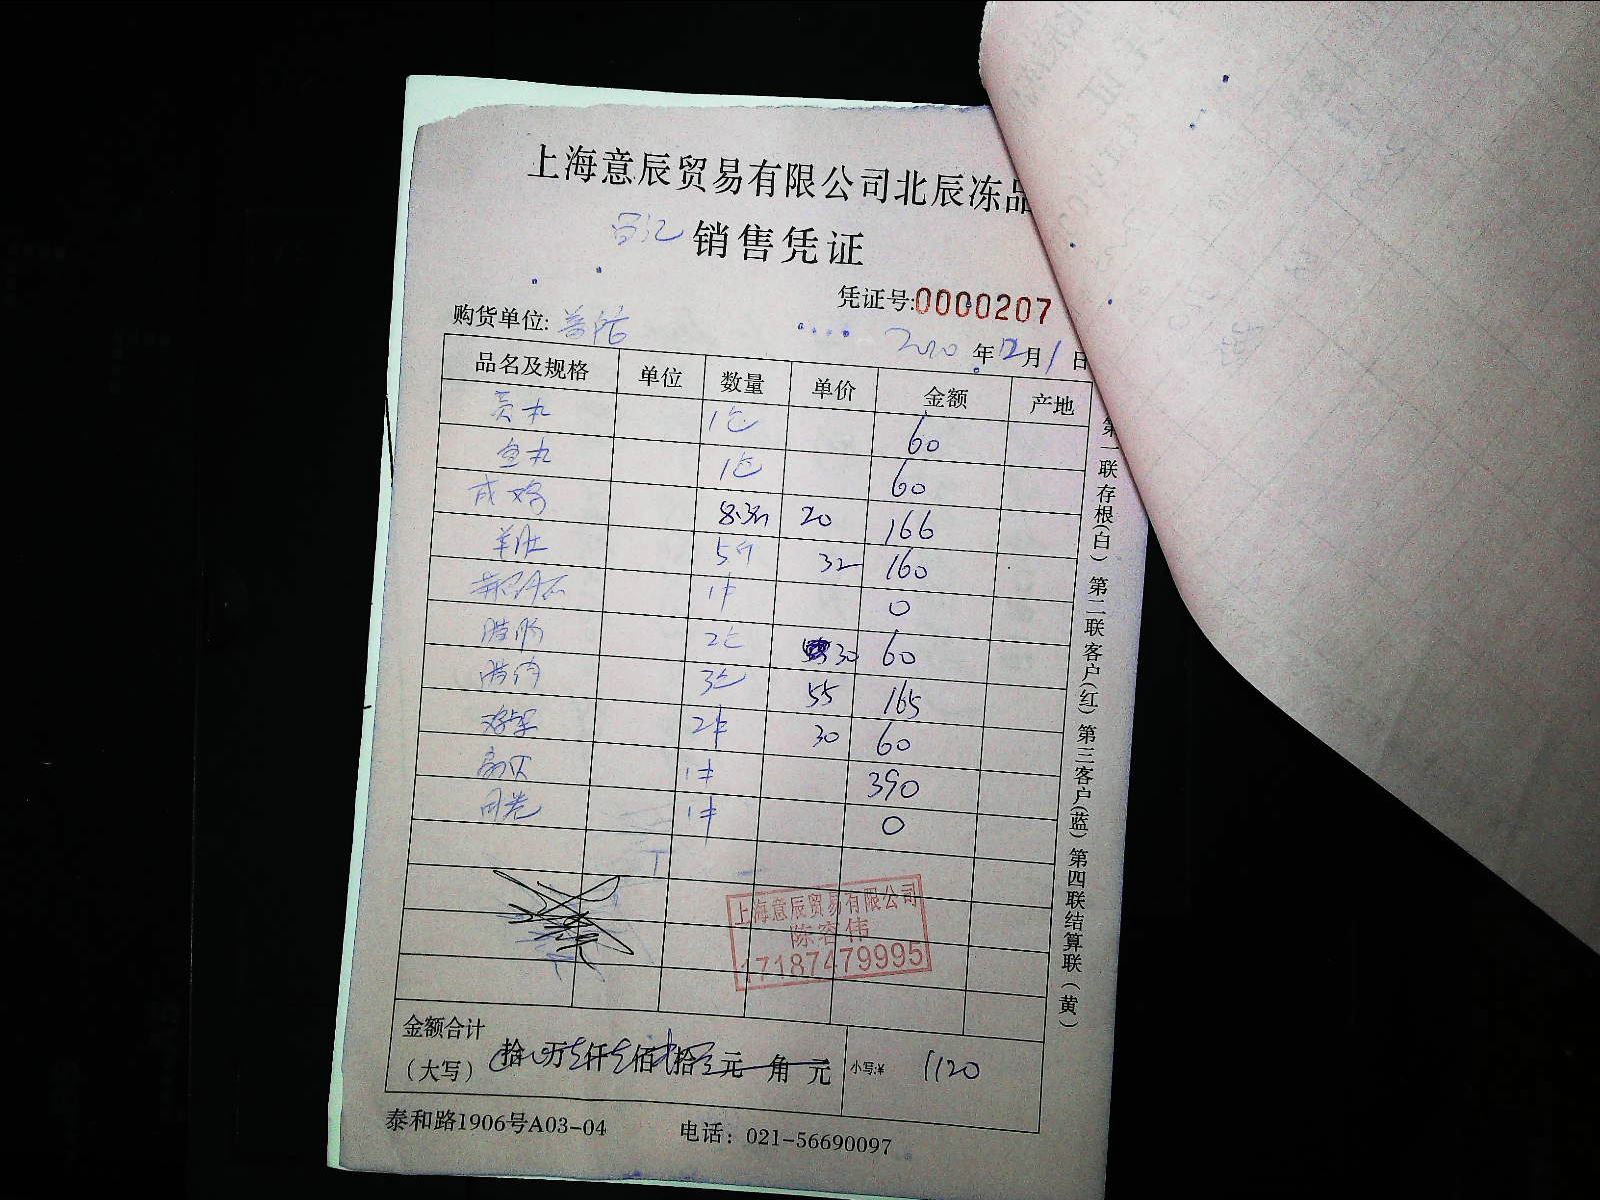 上海意辰贸易有限公司北辰冻品
销售凭证
凭证号:0000207
购货单位:
2020 年 12 月 1 日
品名及规格 单位 数量 单价 金额 产地
贡丸 1包 60
鱼丸 1包 60
成鸡 8.3斤 20 166
羊肚 5斤 32 160
1件 0
2包 30 60
3包 55 165
2件 30 60
1件 390
1件 0
上海意辰贸易有限公司
陈容伟
17187479995
金额合计
(大写) 拾 万 仟 佰 拾 元 角 元 小写:¥ 1120
泰和路1906号A03-04 电话：021-56690097
第一联存根(白) 第二联客户(红) 第三客户(蓝) 第四联结算联(黄)